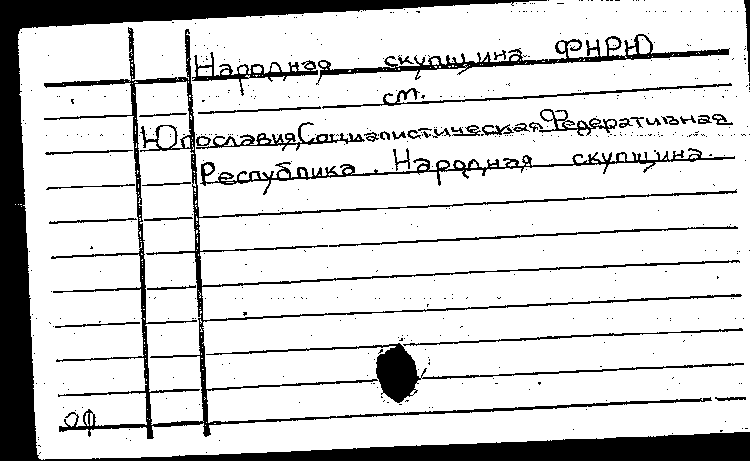 Народная скупщина ФНРЮ
см.
Югославия, Социалистическая Федеративная
Республика. Народная скупщина.
ОФ